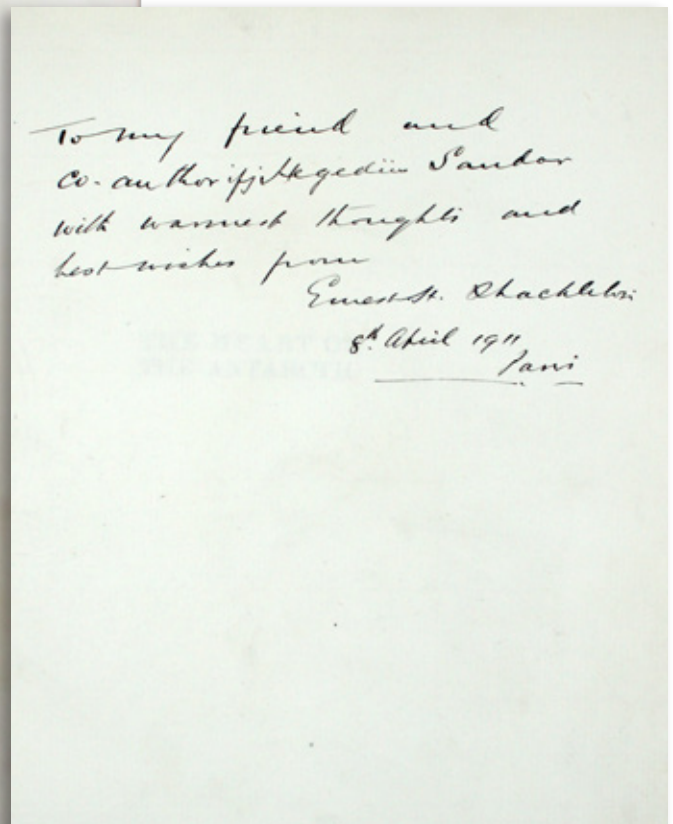 To my friend and
co-author ifj. Hegedüs Sandor
with warmest thoughts and
best wishes from
Ernest H. Shackleton
8th April 1911
Paris